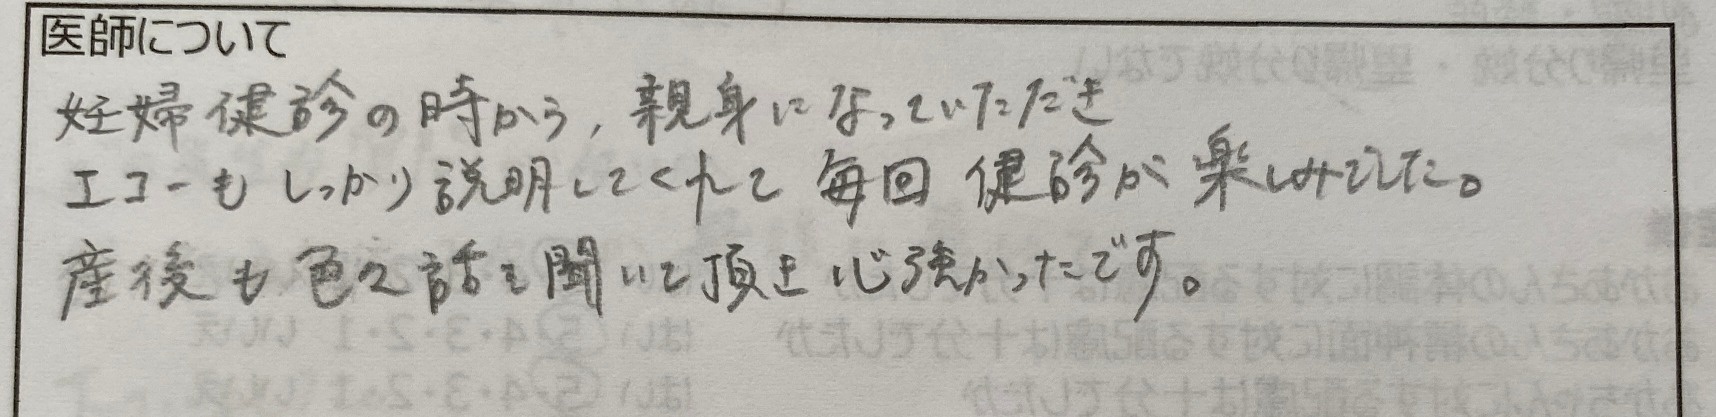 医師について
妊婦健診の時から、親身になっていただき
エコーもしっかり説明してくれて 毎回 健診が楽しみでした。
産後も色々話を聞いて頂き心強かったです。